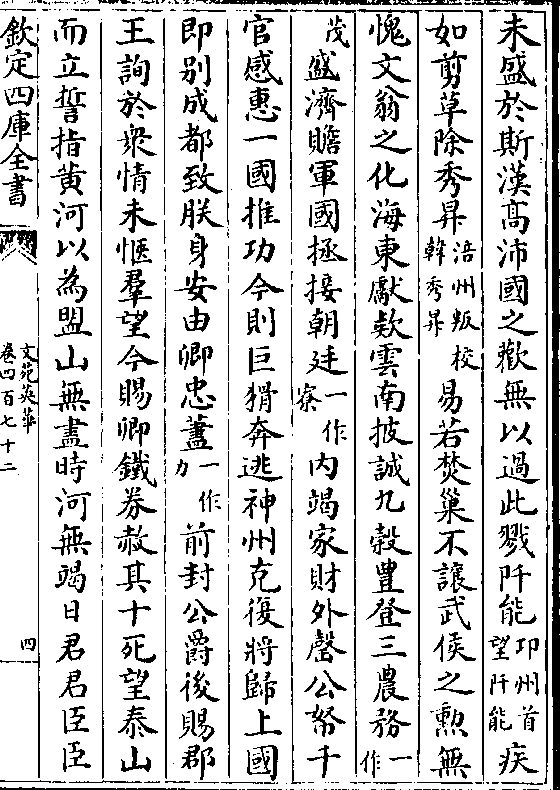 未盛於斯漢髙沛國之歡無以過此戮阡能邛州首望阡能疾
如剪草除秀昇涪州叛校韓秀昇易若焚巢不讓武侯之勲無
愧文翁之化海東獻欵雲南披誠九榖豊登三農務一作
茂盛濟贍軍國拯接朝廷一作寮内竭家財外罄公帑千
官感惠一國推功今則巨猾奔逃神州克復將歸上國
即别成都致朕身安由卿忠藎一作力前封公爵後賜郡
王詢於衆情未惬羣望今賜卿鐵券赦其十死望泰山
而立誓指黄河以為盟山無盡時河無竭日君君臣臣
欽定四庫全書
文苑英華
卷四百七十二
四